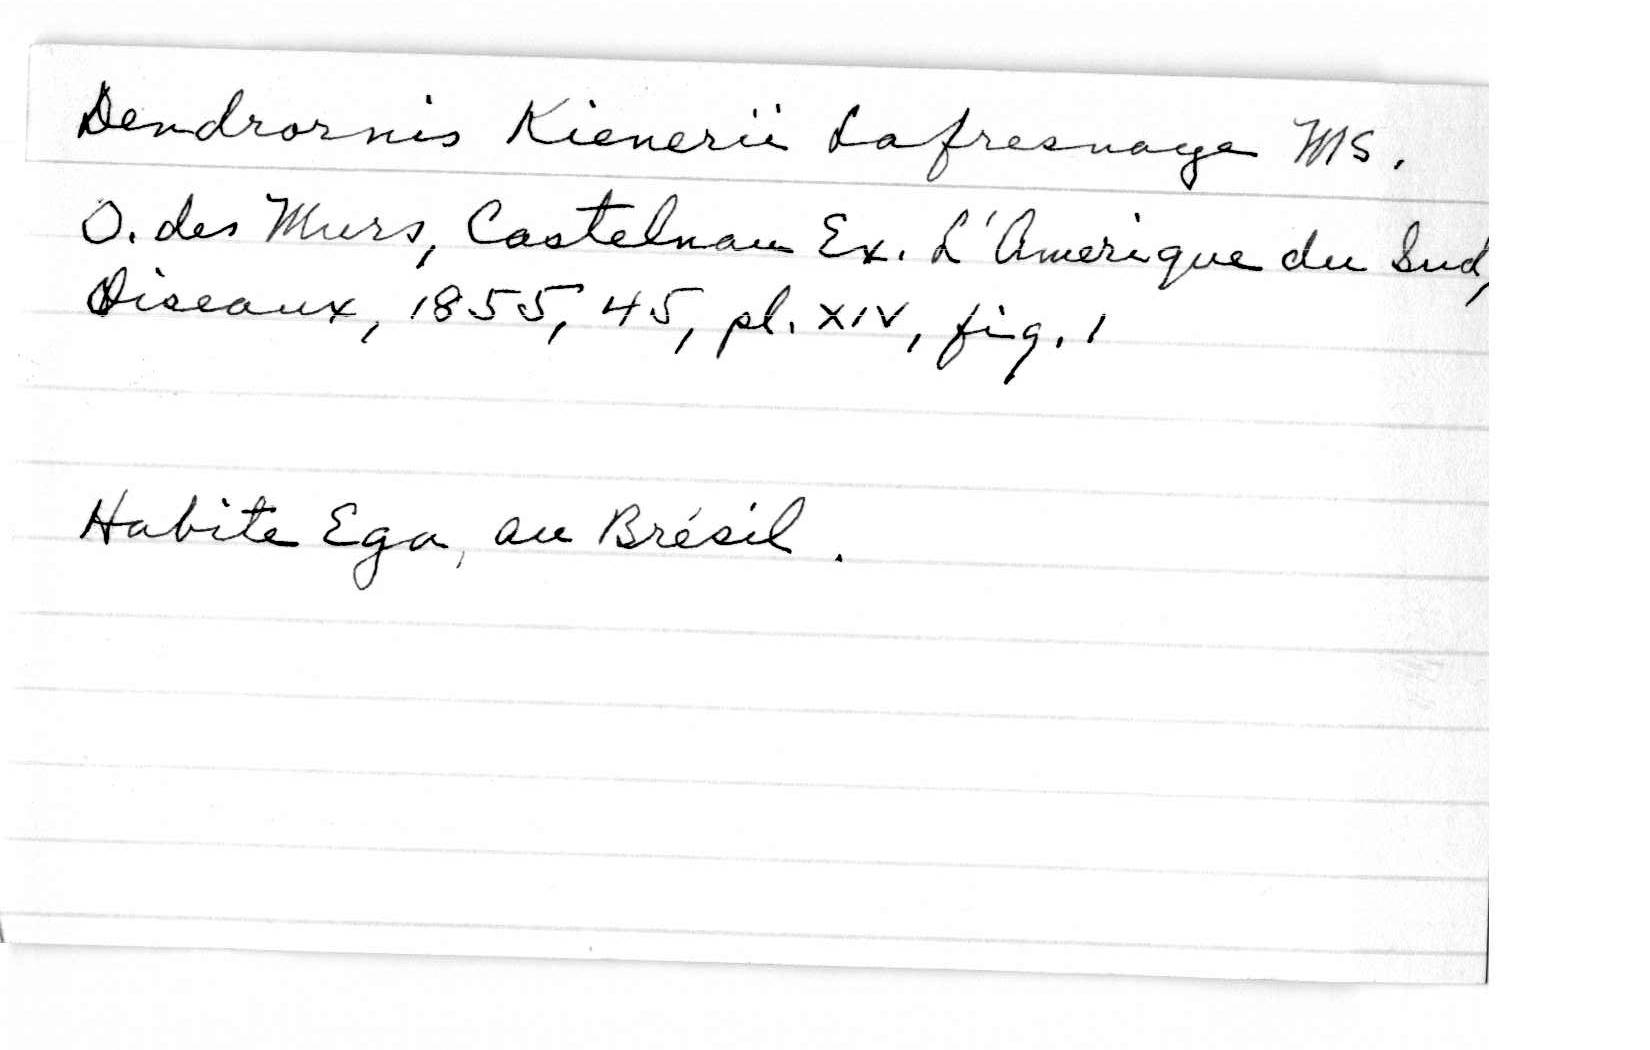 Dendrornis Kienerii Lafresnaye MS.
O. des Murs, Castelnau Ex. L'Amerique du Sud,
Oiseaux, 1855, 45, pl. XIV, fig. 1
Habite Ega, au Brésil.